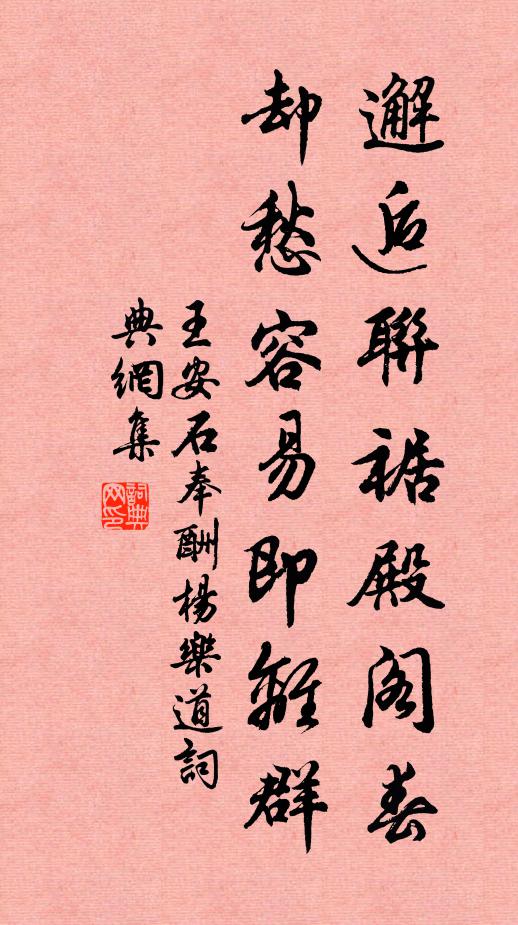 邂逅聯裾殿閣春
却愁容易即離群
王安石奉酬楊樂道詞
典網集
詞典網印